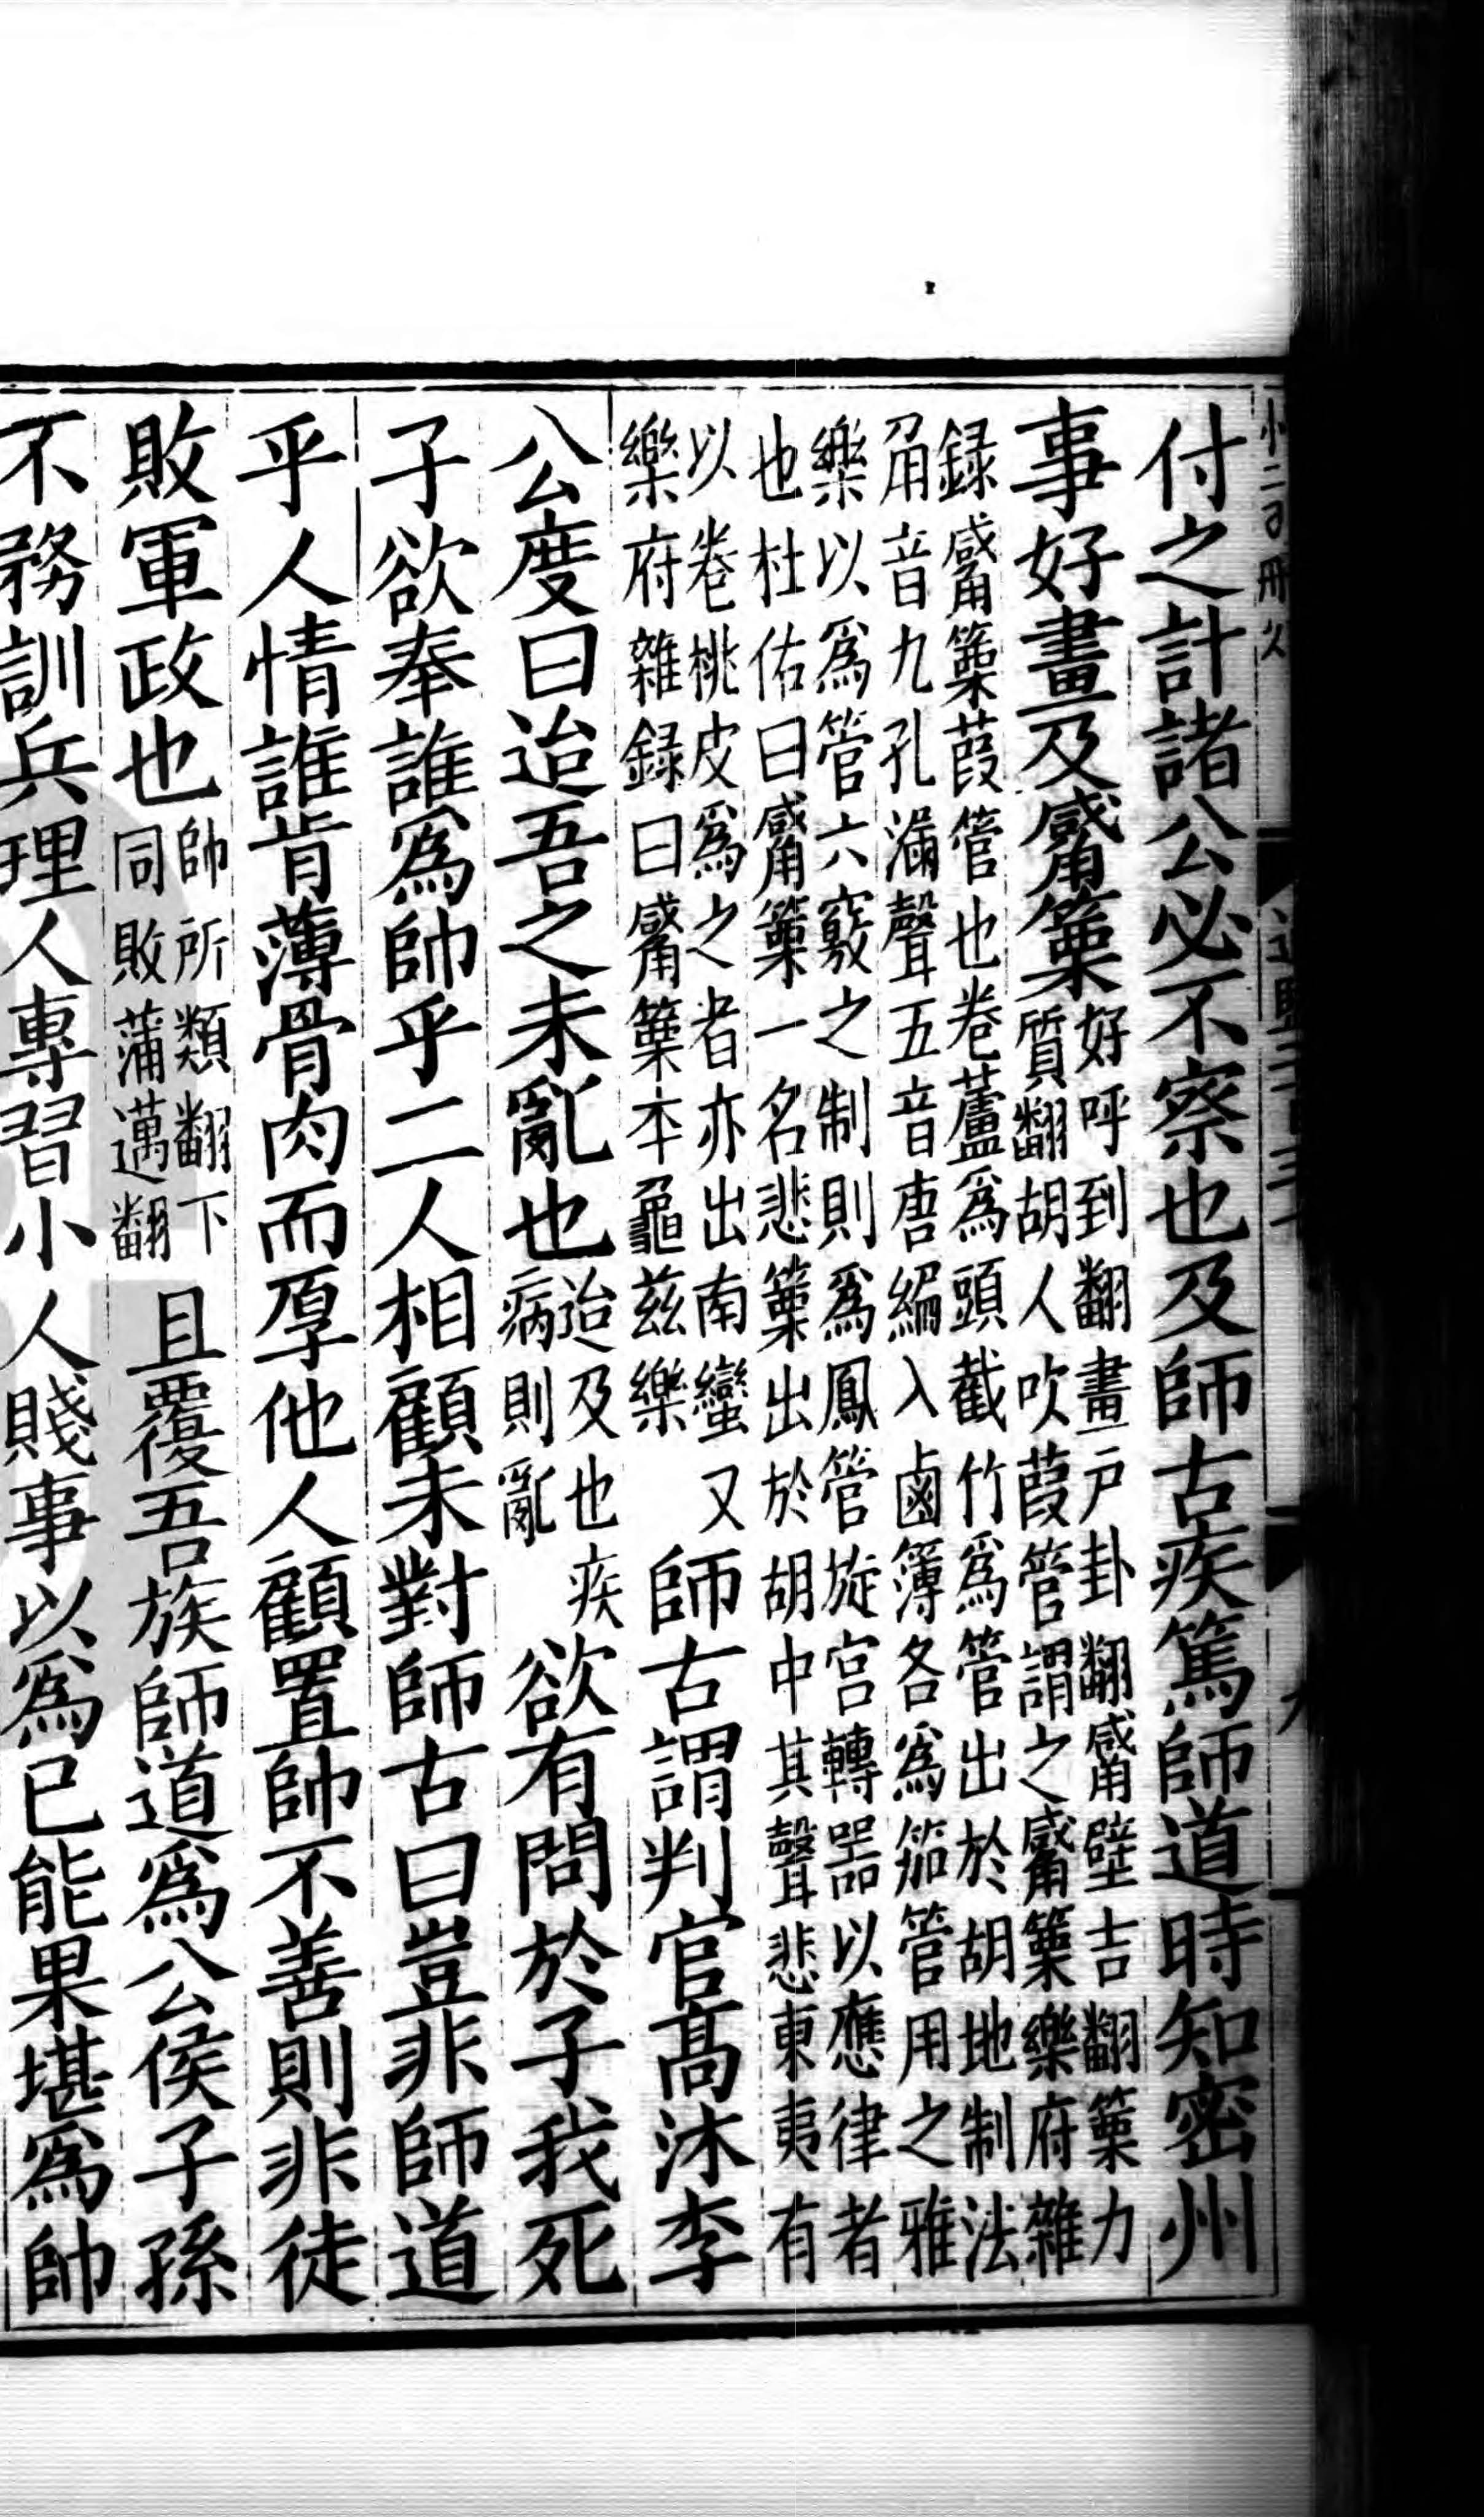 付之計諸公必不察也及師古疾篤師道時知密州
事好畫及觱篥好呼到翻畫戶卦翻觱壁吉翻篥力
質翻胡人吹葭管謂之觱篥樂府雜
録觱篥葭管也卷蘆爲頭截竹爲管出於胡地制法
角音九孔漏聲五音唐編入鹵簿各爲笳管用之雅
樂以爲管六竅之制則爲鳳管旋宮轉器以應律者
也杜佑曰觱篥一名悲篥出於胡中其聲悲東夷有
以卷桃皮爲之者亦出南蠻又
樂府雜録曰觱篥本龜茲樂
師古謂判官髙沐李
公度曰迨吾之未亂也迨及也疾
病則亂
欲有問於子我死
子欲奉誰爲帥乎二人相顧未對師古曰豈非師道
乎人情誰肯薄骨肉而厚他人顧置帥不善則非徒
敗軍政也帥所類翻下
同敗蒲邁翻
且覆吾族師道爲公侯子孫
不務訓兵理人專習小人賤事以爲己能果堪爲帥